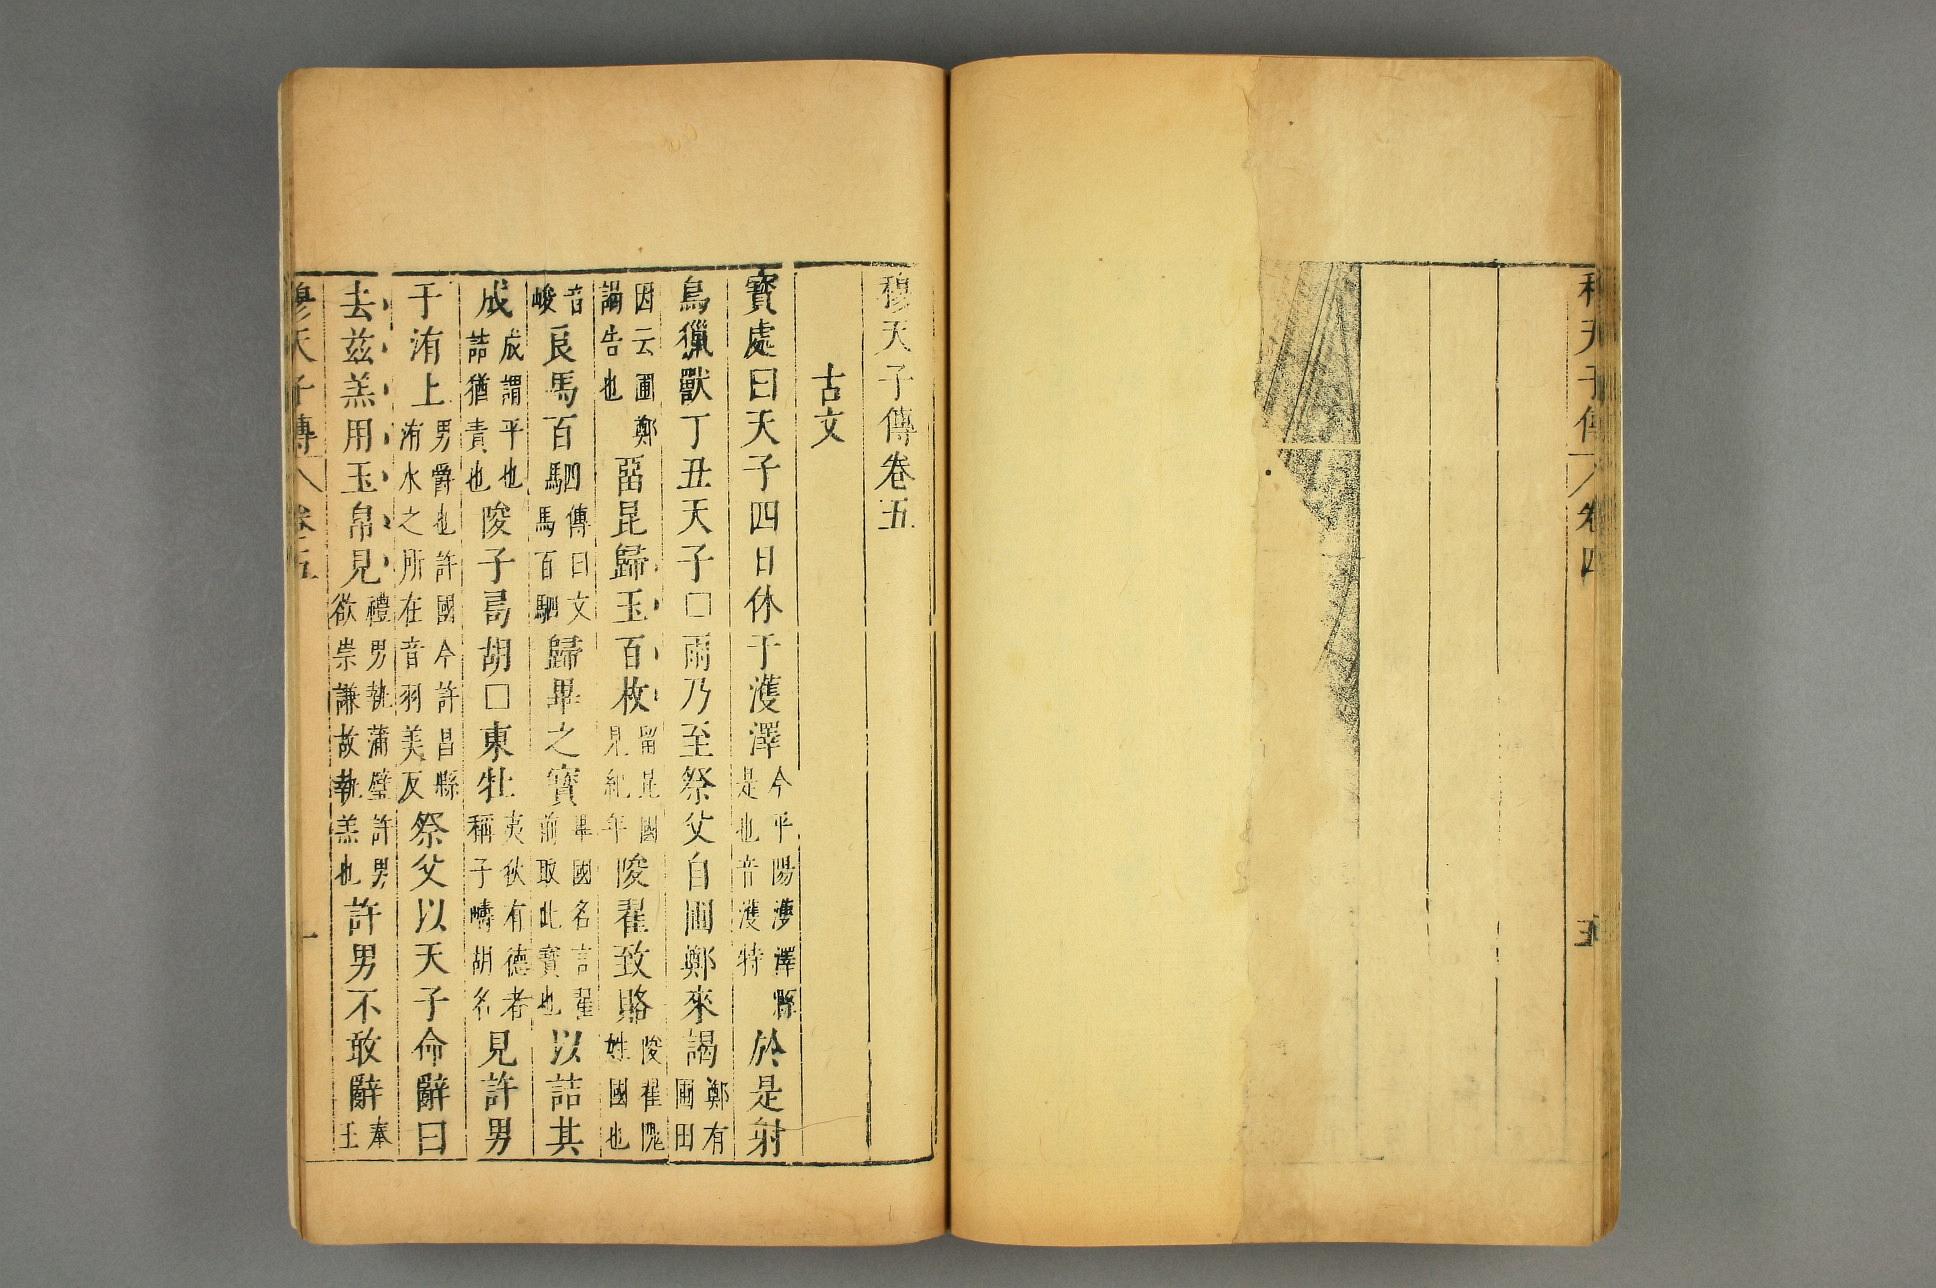 天子傳 卷四
穆天子傳卷五
古文
寳處曰天子四日休于濩澤今平陽濩澤縣是也音濩特於是射
鳥獵獸丁丑天子□雨乃至祭父自圃鄭來謁鄭有圃田
因云圃鄭謁告也留昆歸玉百枚留昆國見紀年陖翟致賂陖翟隗姓國也
音峻良馬百駟傳曰文馬馬百駟歸畢之寳畢國名言翟前取此寳也以詰其
成成謂平也詰猶責也陖子㝵胡□東牡夷狄有德者稱子㝵胡名見許男
于洧上男爵也許國今許昌縣洧水之所在音羽美反祭父以天子命辭曰
去兹羔用玉帛見禮男執蒲璧許男欲崇謙故執羔也許男不敢辭奉王
穆天子傳 卷五 一